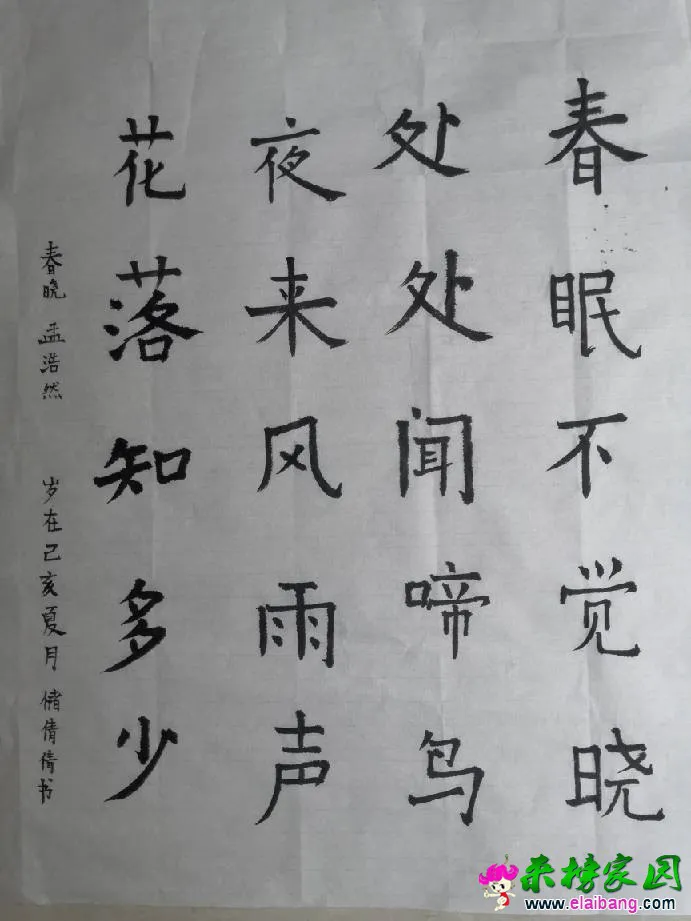 春眠不觉晓
处处闻啼鸟
夜来风雨声
花落知多少
春晓 孟浩然 岁在己亥夏月 储倩倩书
来榜家园
www.elaibang.com